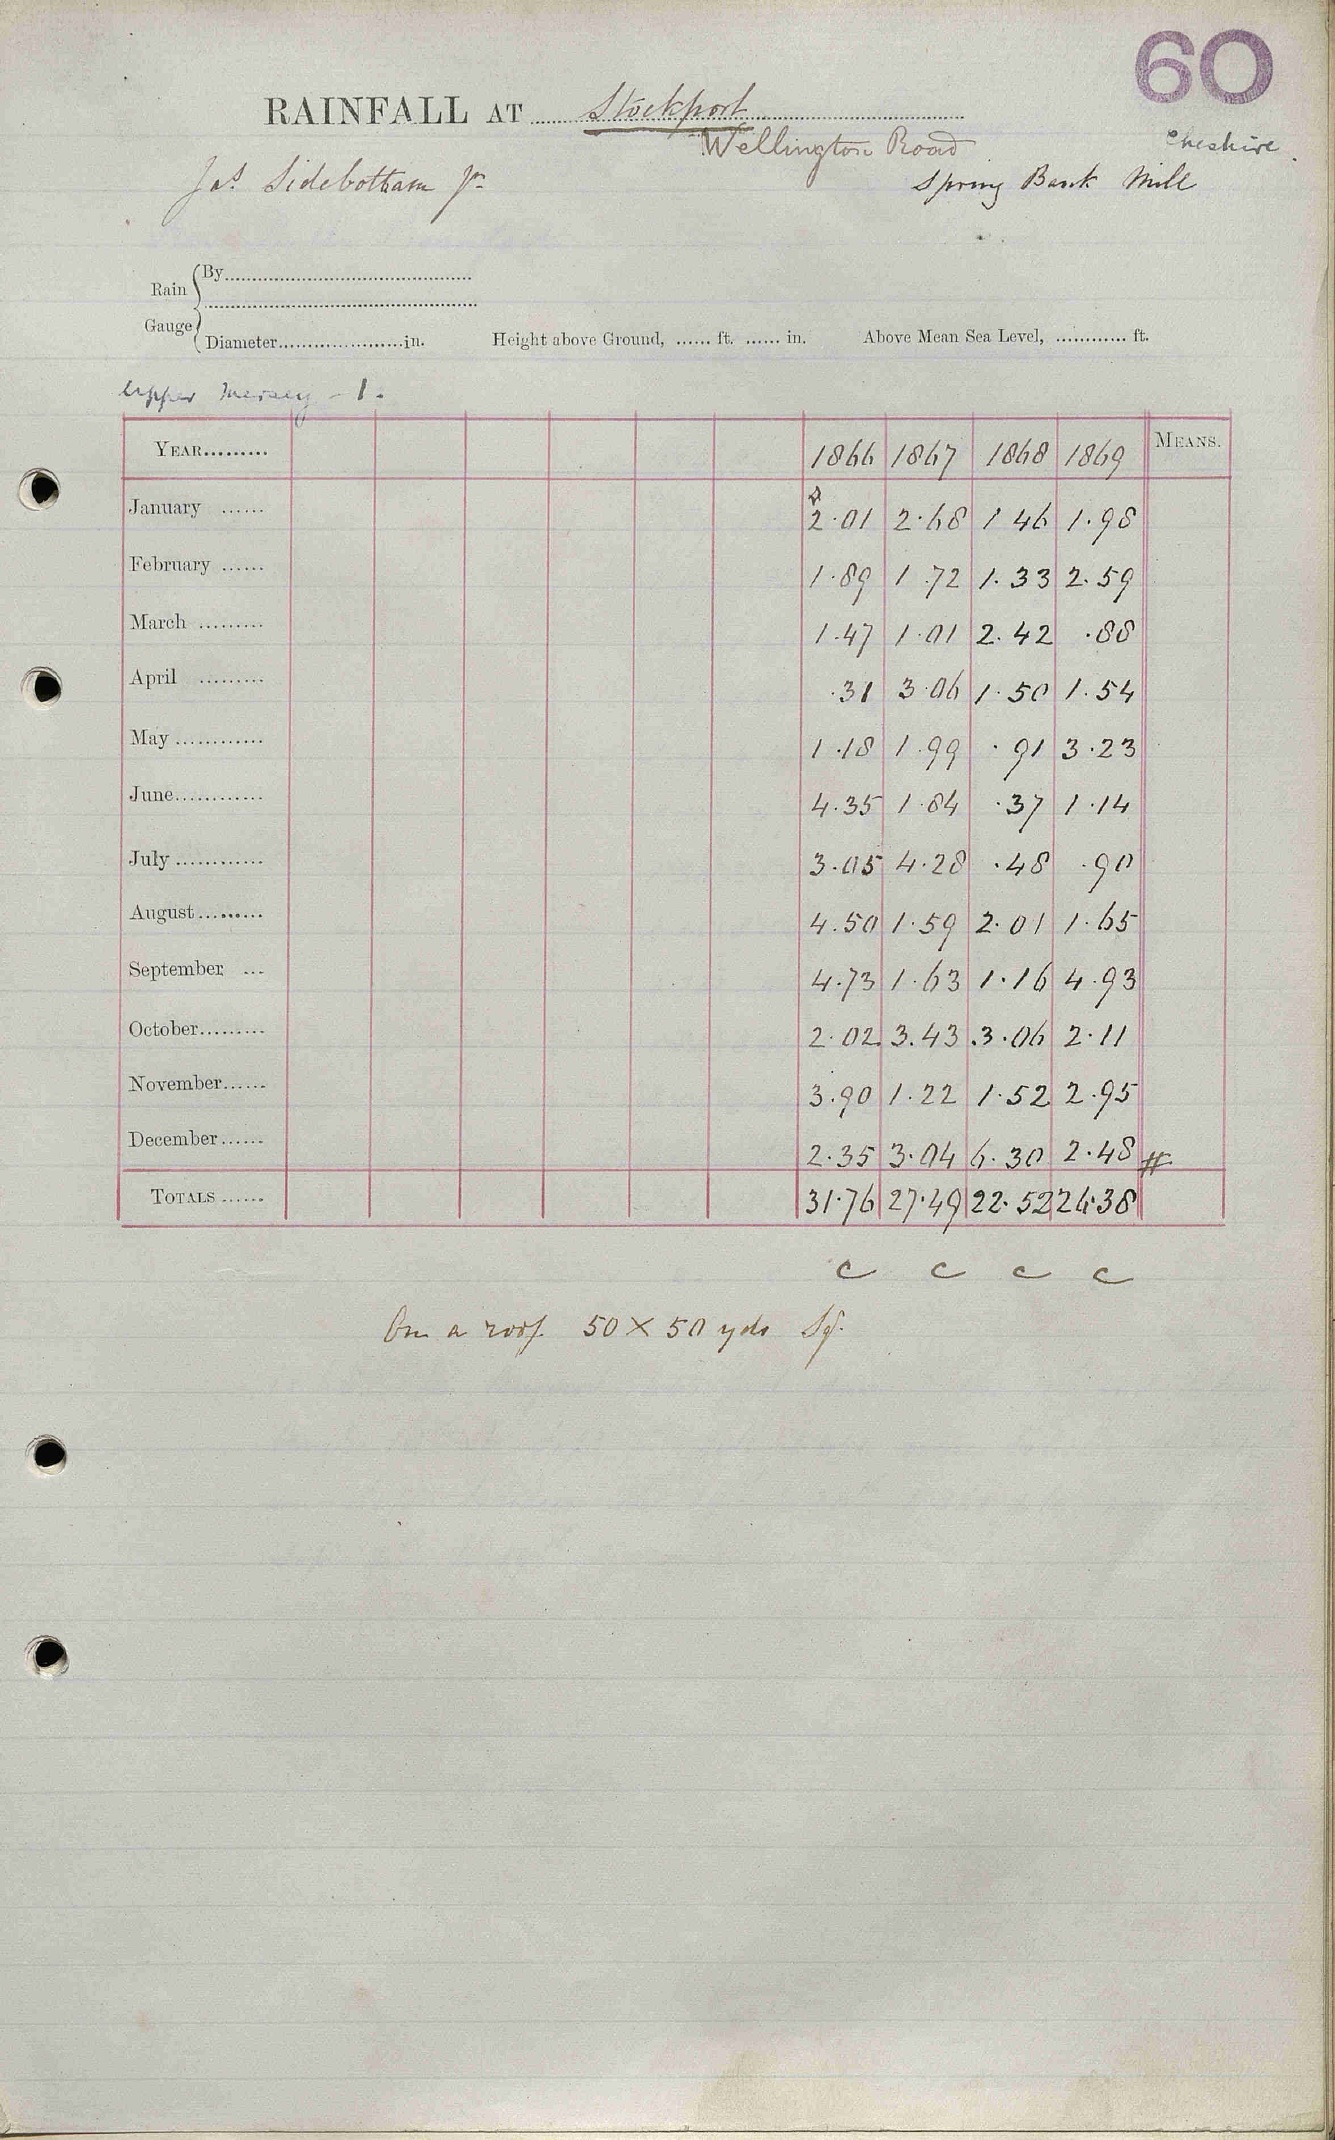 60
RAINFALL AT Stockport
Wellington Road
Cheshire
Jas Sidebotham Jr
Spring Bank Mill
Rain Gauge { By
Diameter in. Height above Ground, ft. in. Above Mean Sea Level, ft.
Upper Mersey - 1.
YEAR 1866 1867 1868 1869 MEANS.
January 2.01 2.68 1 46 1.98
February 1.89 1.72 1.33 2.59
March 1.47 1.01 2.42 .88
April .31 3.06 1.50 1.54
May 1.18 1.99 .91 3.23
June 4.35 1.84 .37 1.14
July 3.05 4.28 .48 .90
August 4.50 1.59 2.01 1.65
September 4.73 1.63 1.16 4.93
October 2.02 3.43 3.06 2.11
November 3.90 1.22 1.52 2.95
December 2.35 3.04 6.30 2.48 #
TOTALS 31.76 27.49 22.52 26.38
c c c c
On a roof 50 X 50 yds Sq.